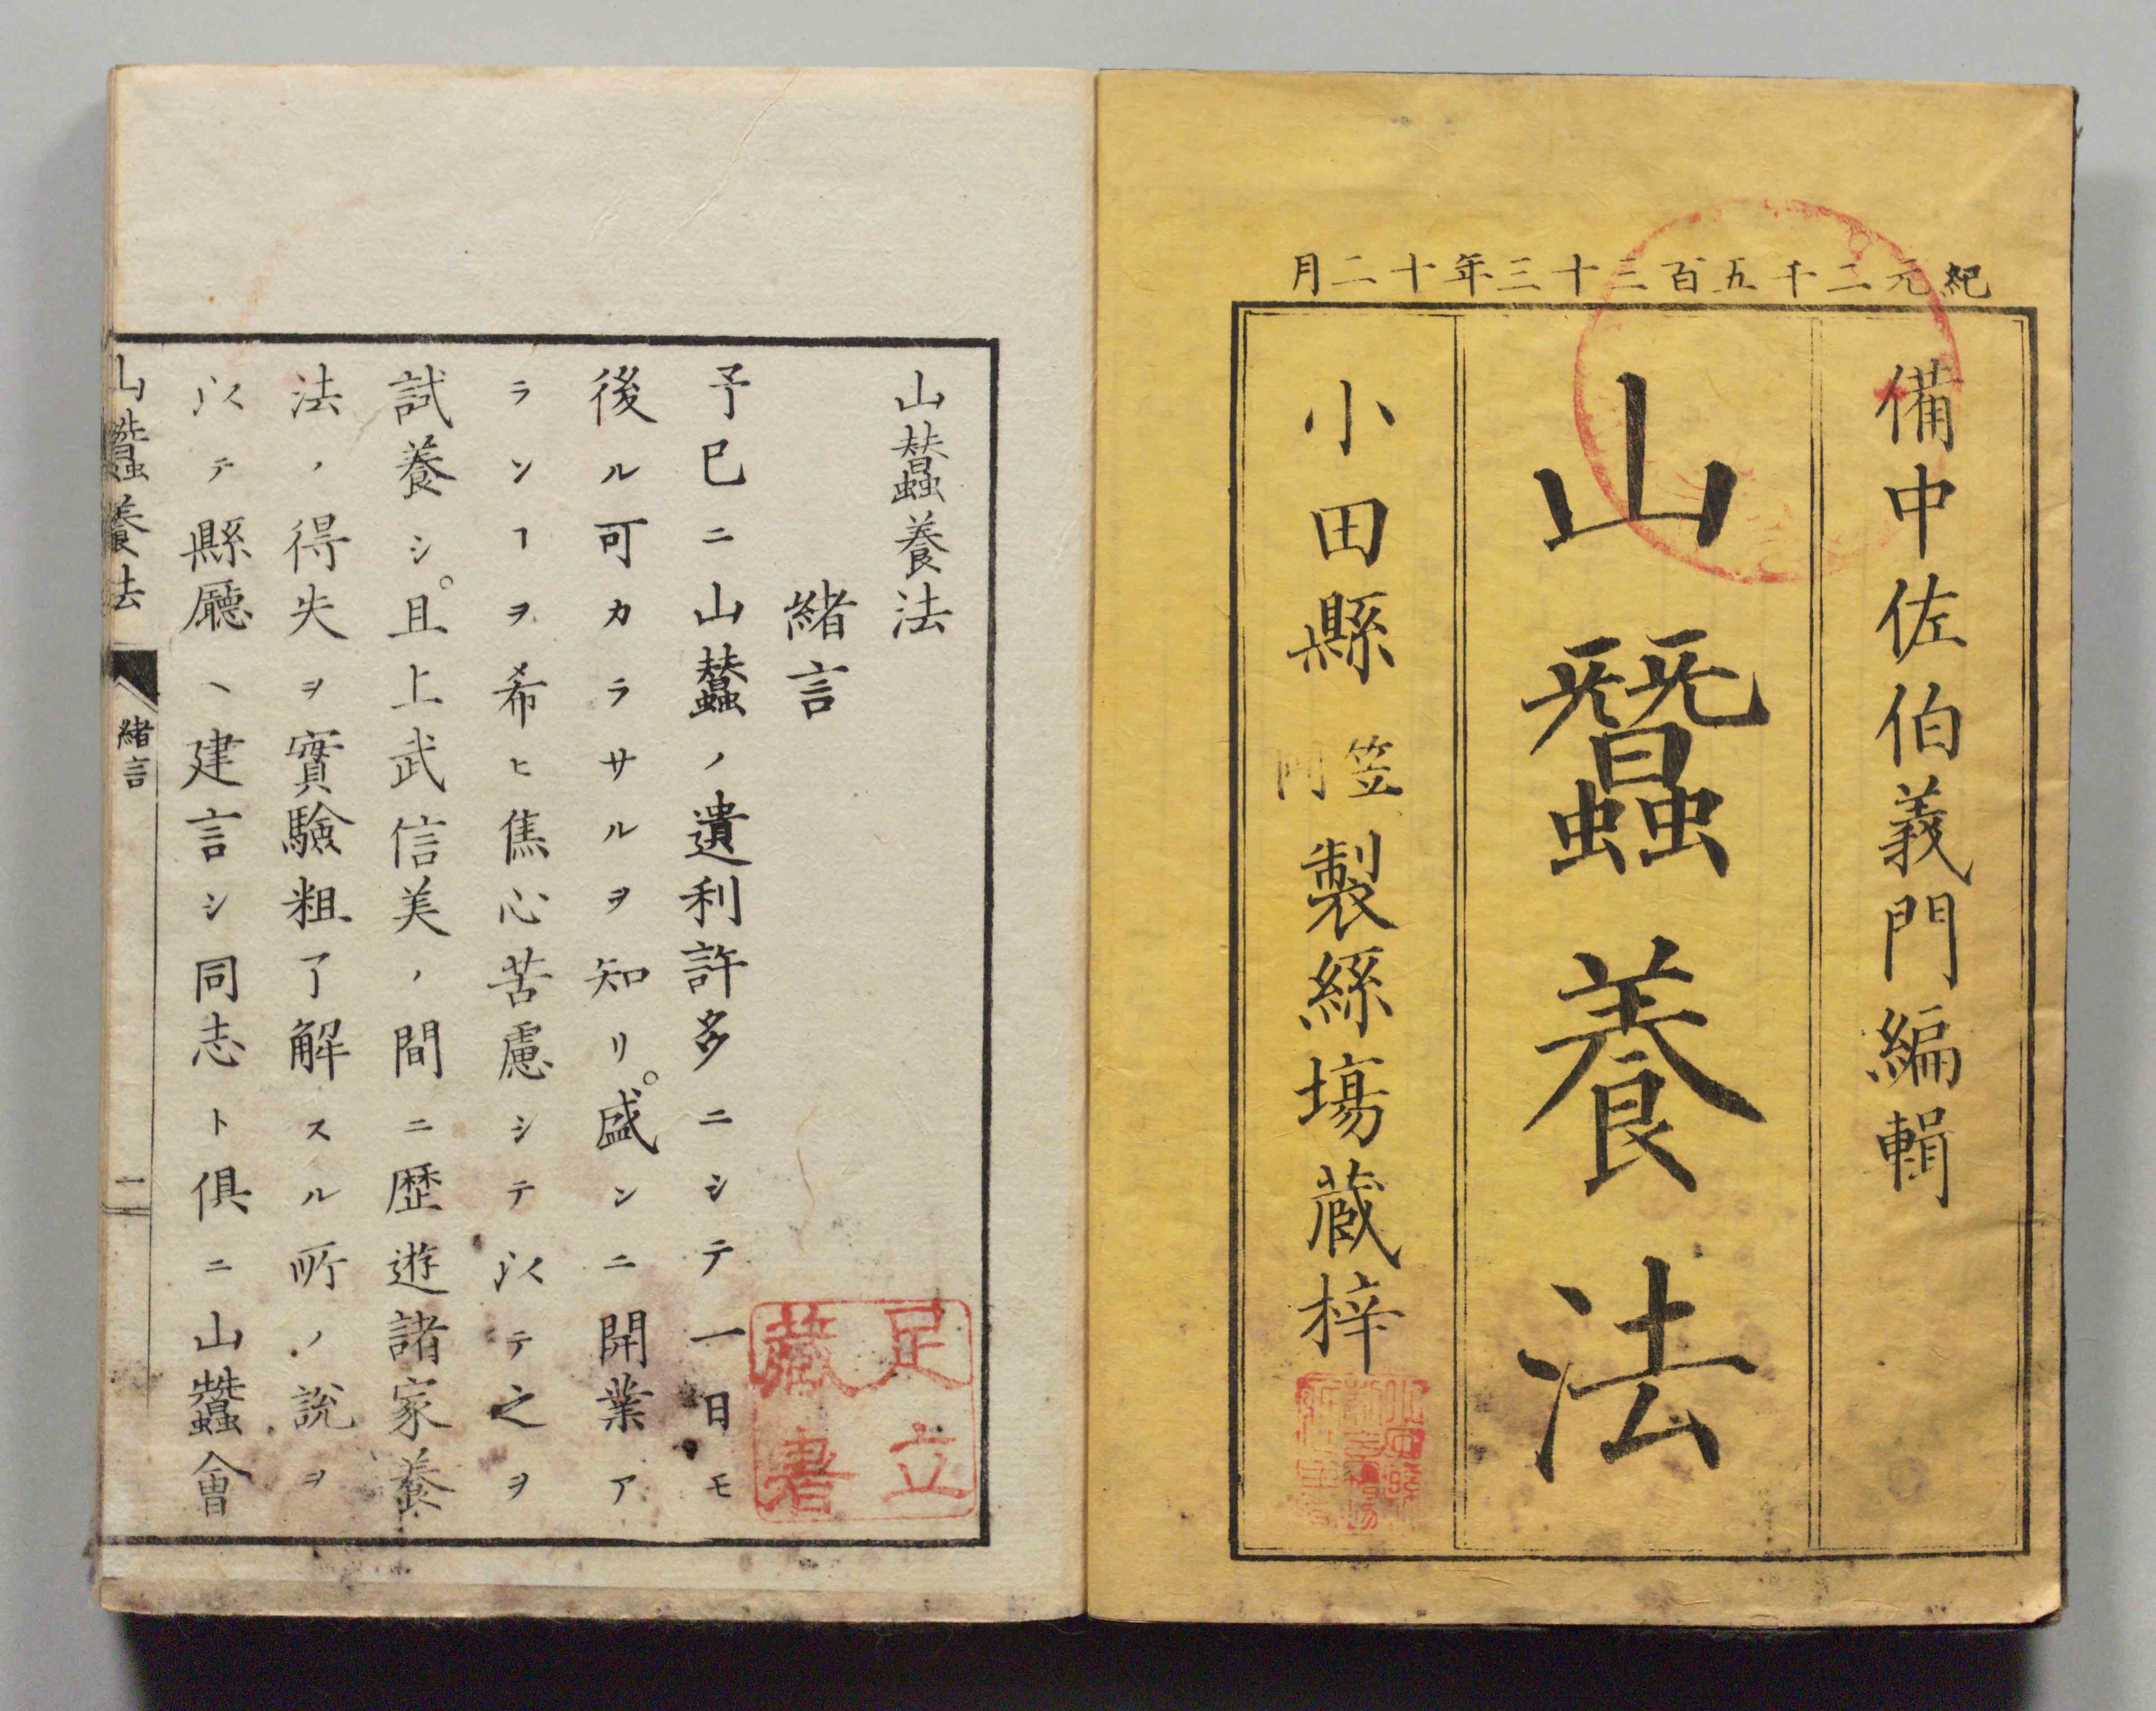 紀元二千五百三十三年十二月
備中佐伯義門編輯
山蠶養法
小田縣
笠岡
製絲塲蔵梓
山蠶養法
緒言
予已ニ山蠶ノ遺利許多ニシテ一日モ
後ル可カラサルヲ知リ。盛ンニ開業ア
ランヿヲ希ヒ焦心苦慮シテ以テ之ヲ
試養シ。且上武信美ノ間ニ歴遊諸家養
法ノ得失ヲ實驗粗了解スル所ノ說ヲ
以テ縣廳ヘ建言シ同志ト俱ニ山蠶會
山蠶養法
緒言
一
足立
藏書